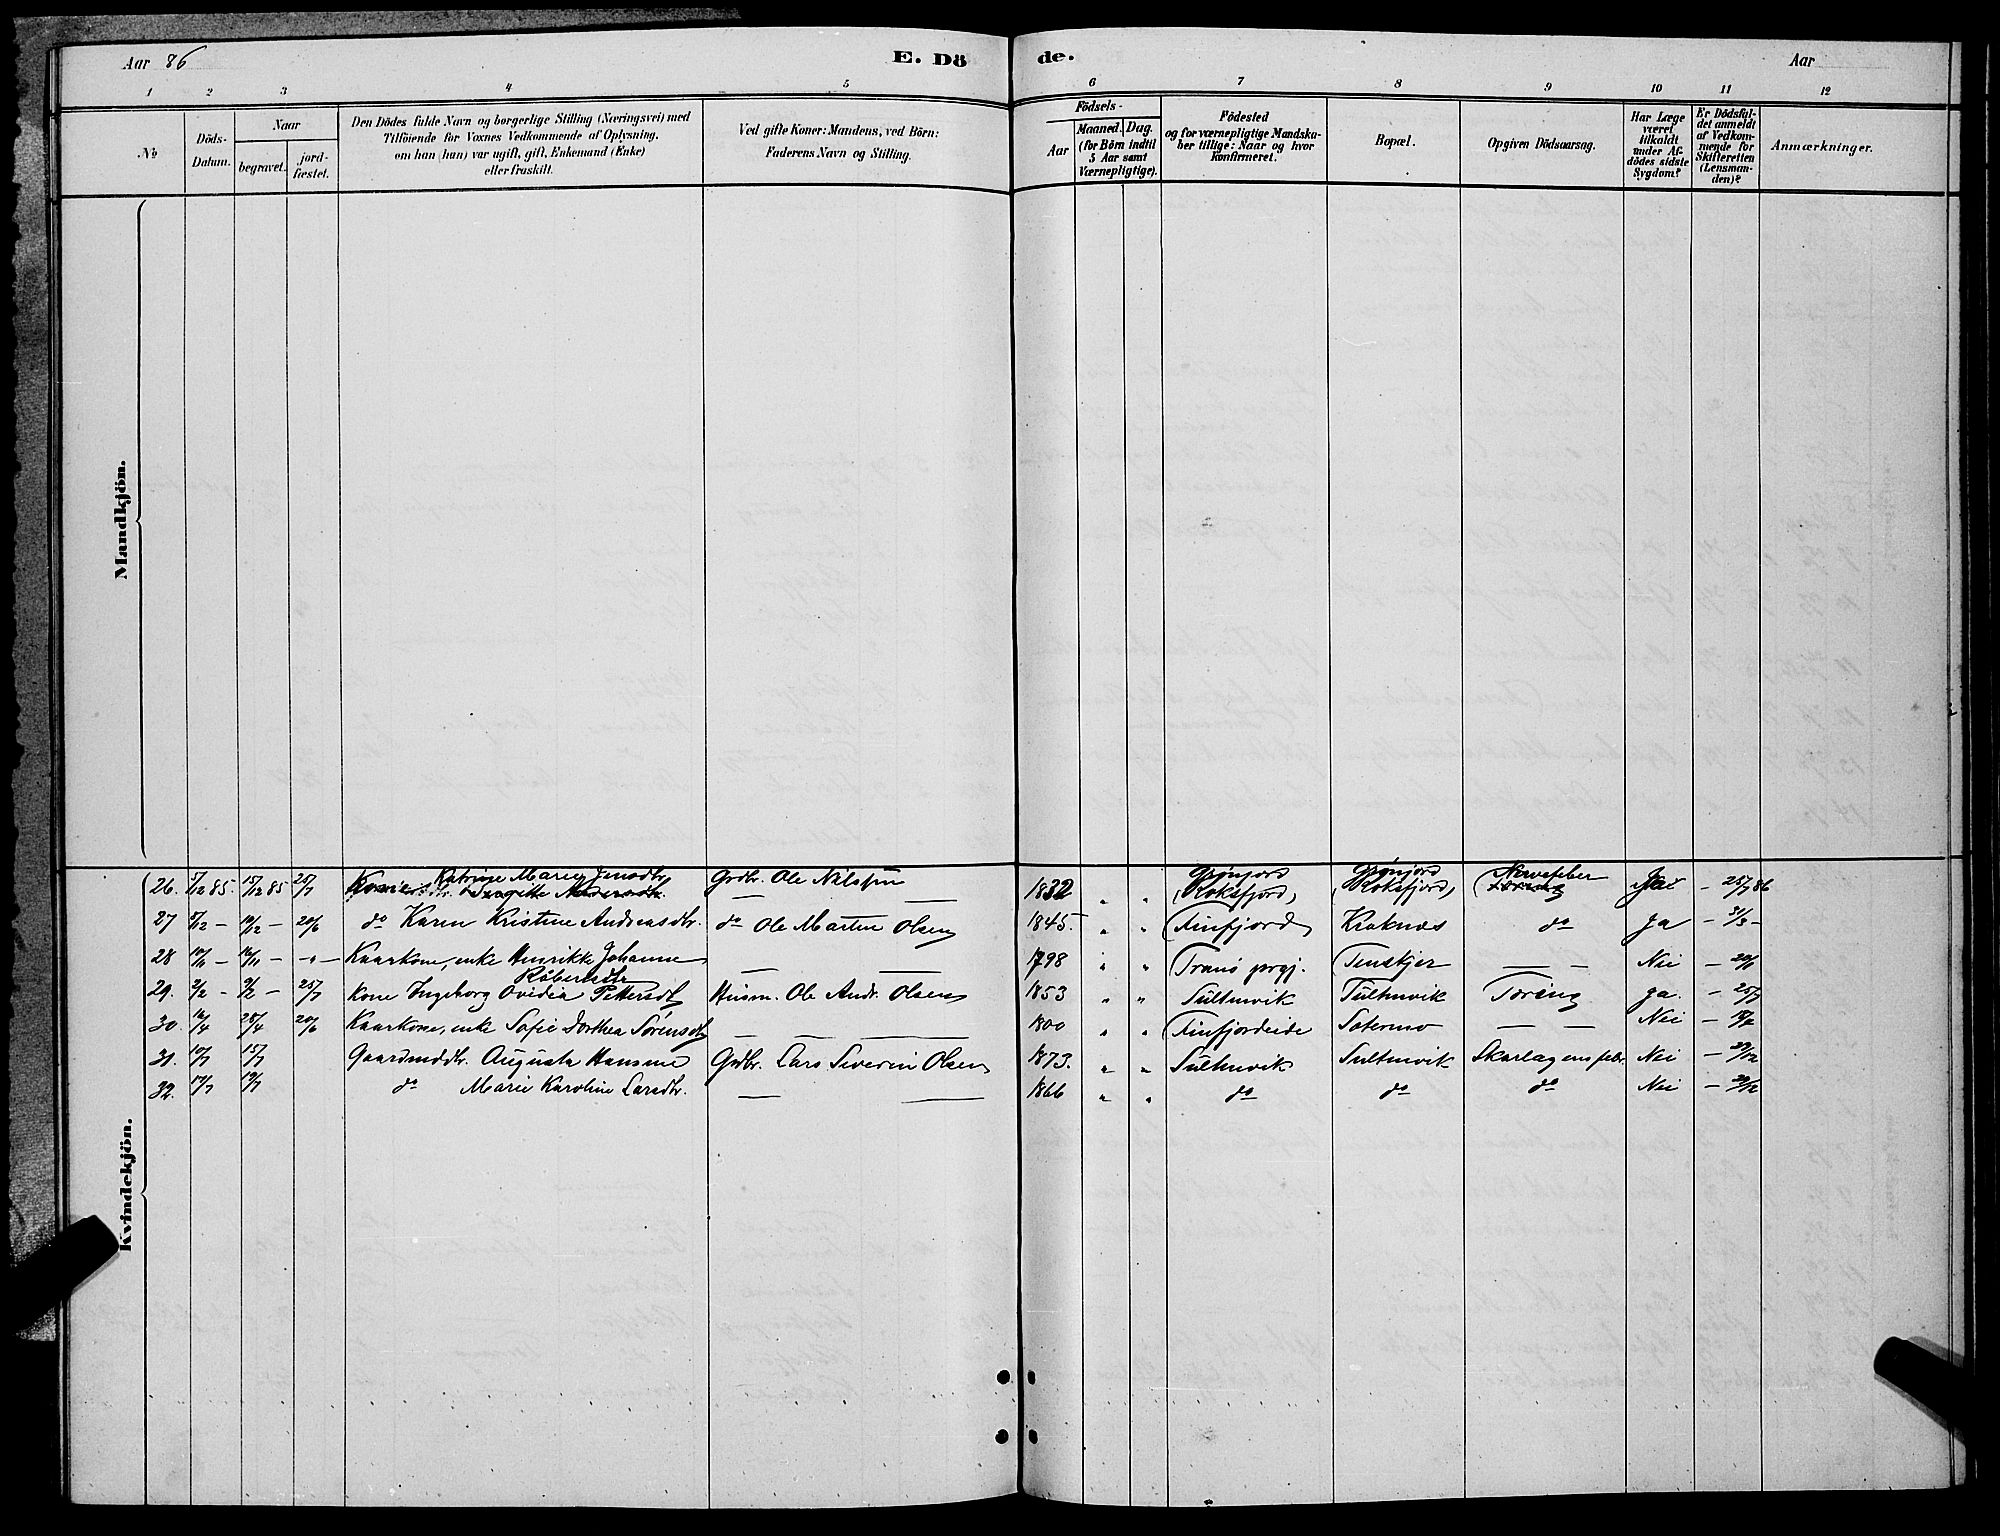 Aar 86 E. Dö de. Aar
1 2 3 4 5 6 7 8 9 10 11 12
No
Döds-Datum.
Naar
begravet.
jordfæstet.
Den Dödes fulde Navn og borgerlige Stilling (Næringsvei) med
Tilföiende for Voxnes Vedkommende af Oplysning,
om han (hun) var ugift, gift, Enkemand (Enke)
eller fraskilt.
Ved gifte Koner: Mandens, ved Börn:
Faderens Navn og Stilling.
Födsels-
Aar
Maaned. Dag.
(for Börn indtil
5 Aar samt
Værnepligtige).
Födested
og for værnepligtige Mandska-
ber tillige: Naar og hvor
konfirmeret.
Bopæl.
Opgiven Dödsaarsag.
Har Læge
været
tilkaldt
under Af-
dödes sidste
Sygdom?
Er Dödsfal-
det anmeldt
af Vedkom-
mende for
Skifteretten
(Lensman-
den)?
Anmærkninger.
Mandkjön.
Katrine Marey Jensdtr. Grönjord Grönjord Nervefeber
26. 5/12 85. 15/12 85 25/7 Grdbr. Ole Nilssen 1832 " " (Roksfjord) (Roksfjord) — 25/7 86
27 5/12 — 19/12 — 20/6 do Karen Kristine Andreasdtr. do Ole Martin Olsen 1845. " " Finfjord Kraknes do Ja — 3/3 —
28 — — — " — Kaarkone, enke Henrikke Johanne — — 1798 " " Tranö prgj. Tenskjer — — Nei — 20/6
Råbersdtr
29. 2/2 — 9/2 — 25/7 Kone Ingeborg Ovidia Pettersdt Husm. Ole Andr. Olsen 1853 " " Sultenvik Tultenvik Tæring ja. — 25/7
30. 16/4 28/4 20/6 Kaarkone, enke Sofie Dorthea Sörensdt — — 1800 " " Finfjordeide Sætermo — — Nei —
31. 10/7 15/7 Gaardmddtr. Augusta Hansine Grdbr. Lars Severin Olsen 1873. " " Sultenvik Sultenvik Skarlagensfeber Nei — 29/12
32. 17/7 19/7 do Marie Karoline Larsdtr. — — 1866 " " do do do Nei — 29/12
Kvindekjön.